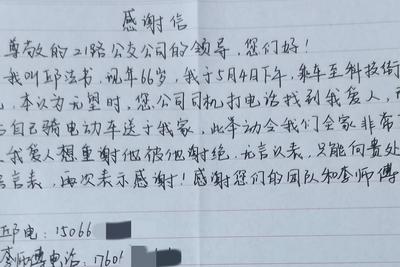 感谢信
尊敬的21路公交公司的领导，您们好！
我叫邱法书，现年66岁，我于5月4日下午，乘车至科技街
，本认为无望时，您公司司机打电话找到我爱人，
自己骑电动车送于我家，此举动令我们全家非常
我爱人想重谢他被他谢绝，无言以表，只能向贵处
言表，再次表示感谢！感谢您们的团队和李师傅
邱电：15066
李师傅电话：1760